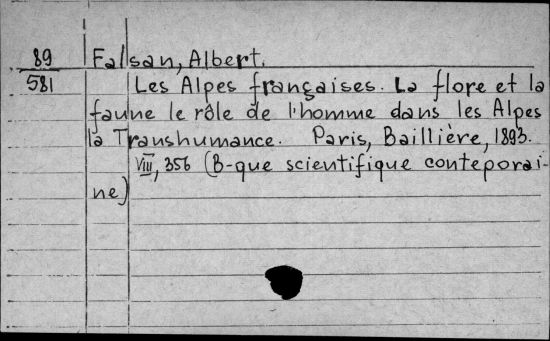 89 Falsan, Albert.
581 Les Alpes françaises. La flore et la
faune le rôle de l'homme dans les Alpes
la Transhumance. Paris, Baillière, 1893.
VIII, 356 (B-que scientifique conteporai-
ne)